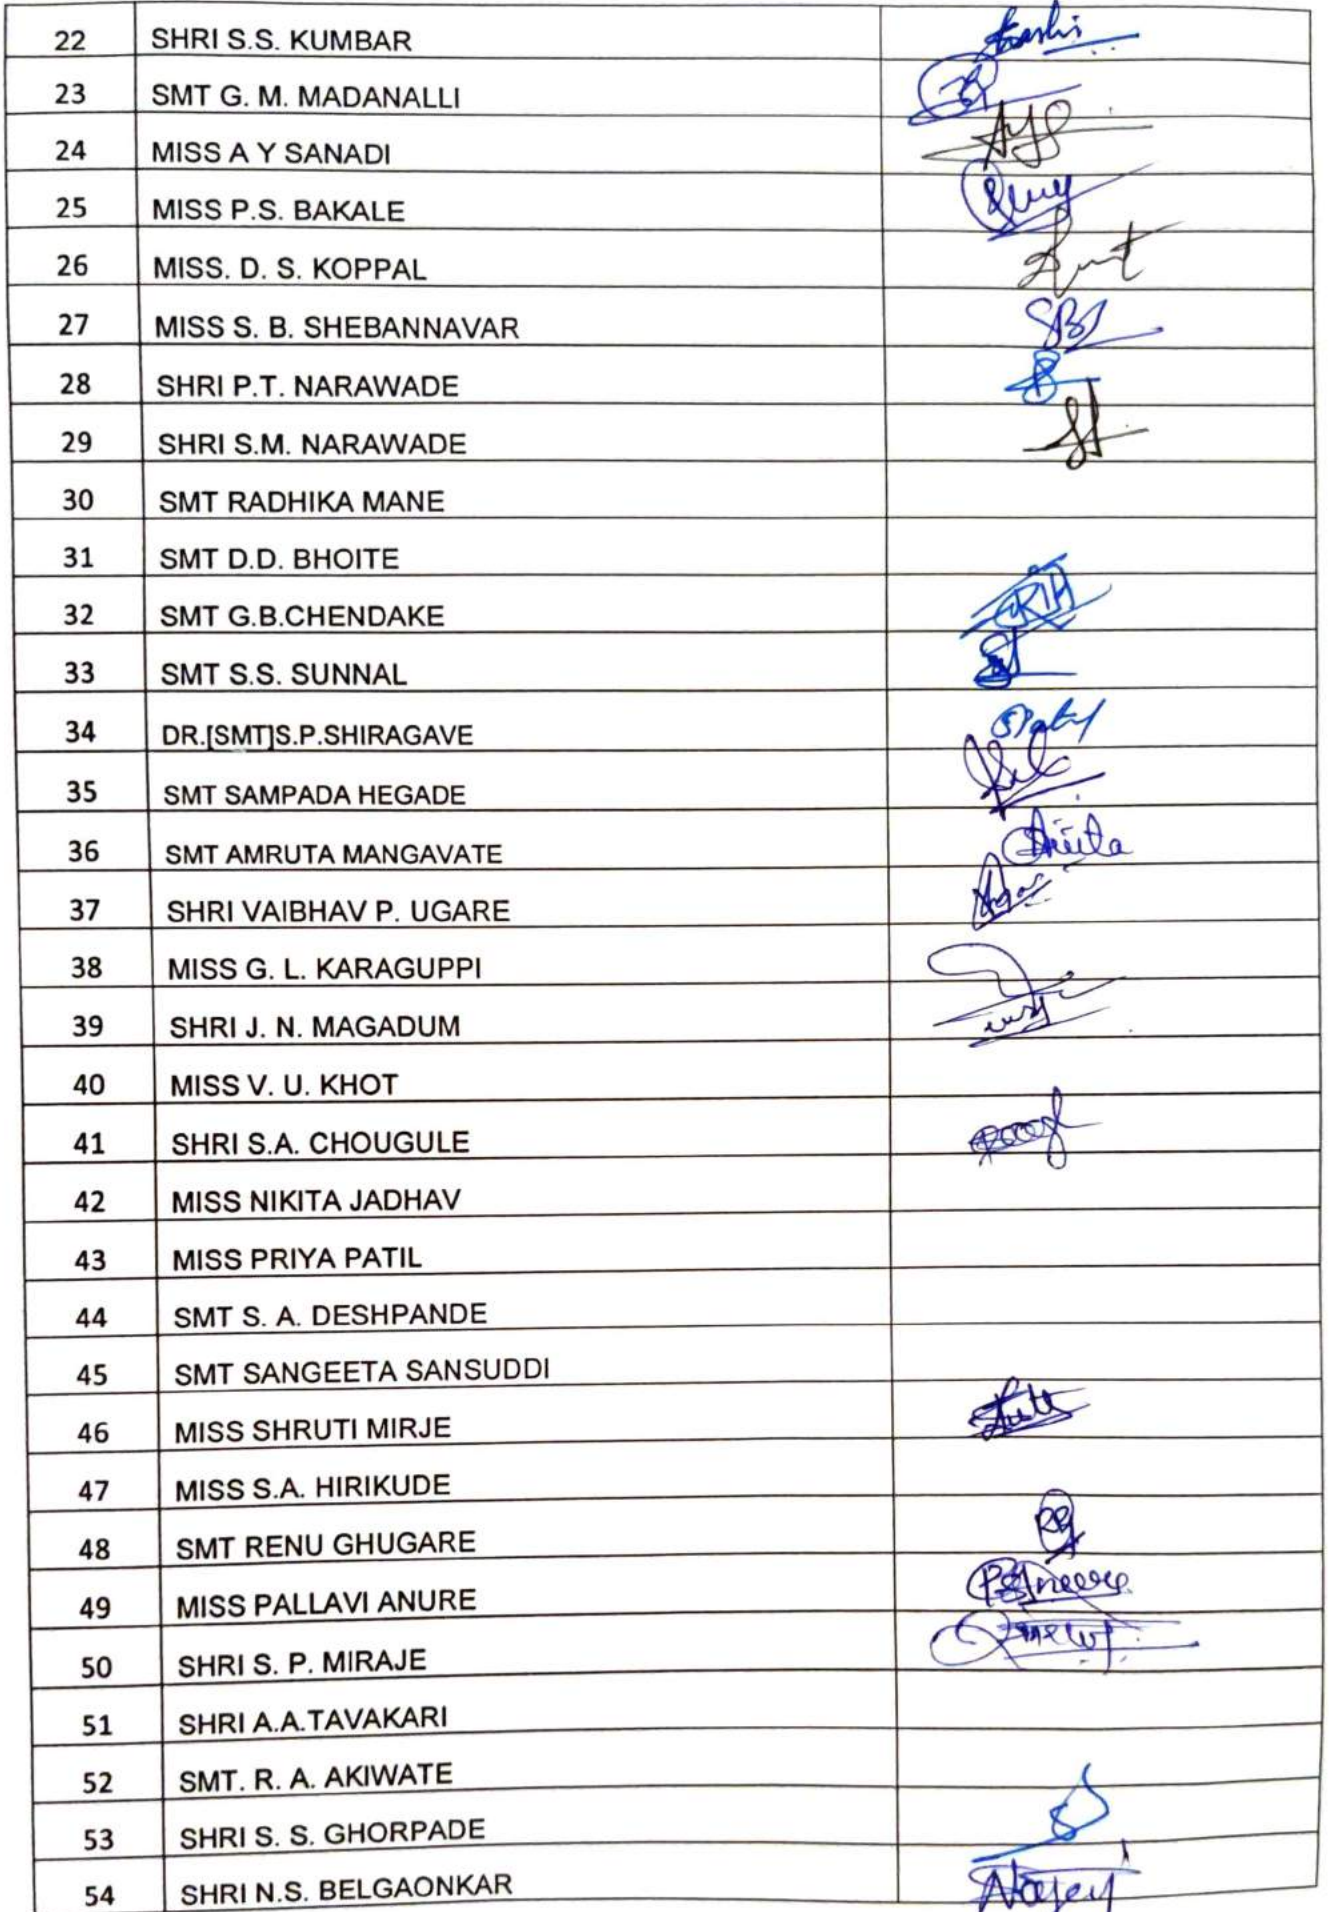 22 SHRI S.S. KUMBAR
23 SMT G. M. MADANALLI
24 MISS A Y SANADI AYS
25 MISS P.S. BAKALE
26 MISS. D. S. KOPPAL
27 MISS S. B. SHEBANNAVAR SBS
28 SHRI P.T. NARAWADE
29 SHRI S.M. NARAWADE
30 SMT RADHIKA MANE
31 SMT D.D. BHOITE
32 SMT G.B.CHENDAKE
33 SMT S.S. SUNNAL
34 DR.[SMT]S.P.SHIRAGAVE
35 SMT SAMPADA HEGADE
36 SMT AMRUTA MANGAVATE
37 SHRI VAIBHAV P. UGARE
38 MISS G. L. KARAGUPPI
39 SHRI J. N. MAGADUM
40 MISS V. U. KHOT
41 SHRI S.A. CHOUGULE
42 MISS NIKITA JADHAV
43 MISS PRIYA PATIL
44 SMT S. A. DESHPANDE
45 SMT SANGEETA SANSUDDI
46 MISS SHRUTI MIRJE
47 MISS S.A. HIRIKUDE
48 SMT RENU GHUGARE
49 MISS PALLAVI ANURE
50 SHRI S. P. MIRAJE
51 SHRI A.A.TAVAKARI
52 SMT. R. A. AKIWATE
53 SHRI S. S. GHORPADE
54 SHRI N.S. BELGAONKAR